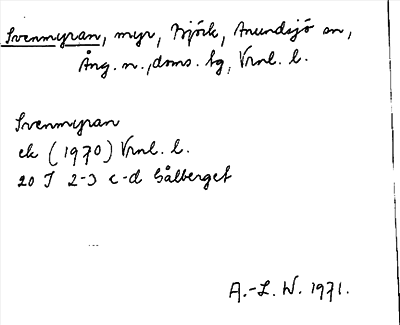 Svenmyran, myr, Björk, Anundsjö sn,
Ång. n., doms. lg, Vrnl. l.
Svenmyran
ek (1970) Vrnl. l.
20 I 2-3 c-d Gålberget
A.-L. W. 1971.